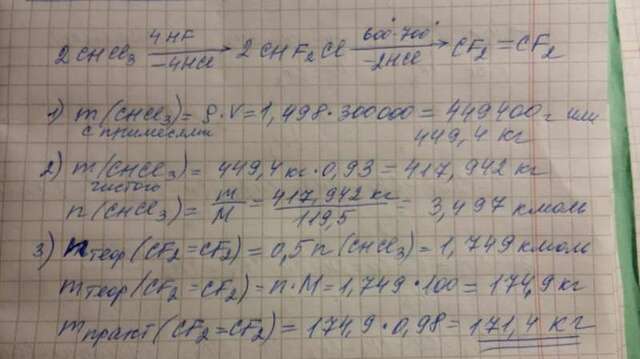 2CHCl₃ 4HF/-4HCl → 2CHF₂Cl 600°-700°/-2HCl → CF₂=CF₂
1) m(CHCl₃) = ρ·V = 1,498·300000 = 449400 г или
с примесями 449,4 кг
2) m(CHCl₃) = 449,4 кг·0,93 = 417,942 кг
чистого
n(CHCl₃) = m/M = 417,942 кг/119,5 = 3,497 кмоль
3) nтеор(CF₂=CF₂) = 0,5n(CHCl₃) = 1,749 кмоль
mтеор(CF₂=CF₂) = n·M = 1,749·100 = 174,9 кг
mпракт(CF₂=CF₂) = 174,9·0,98 = 171,4 кг